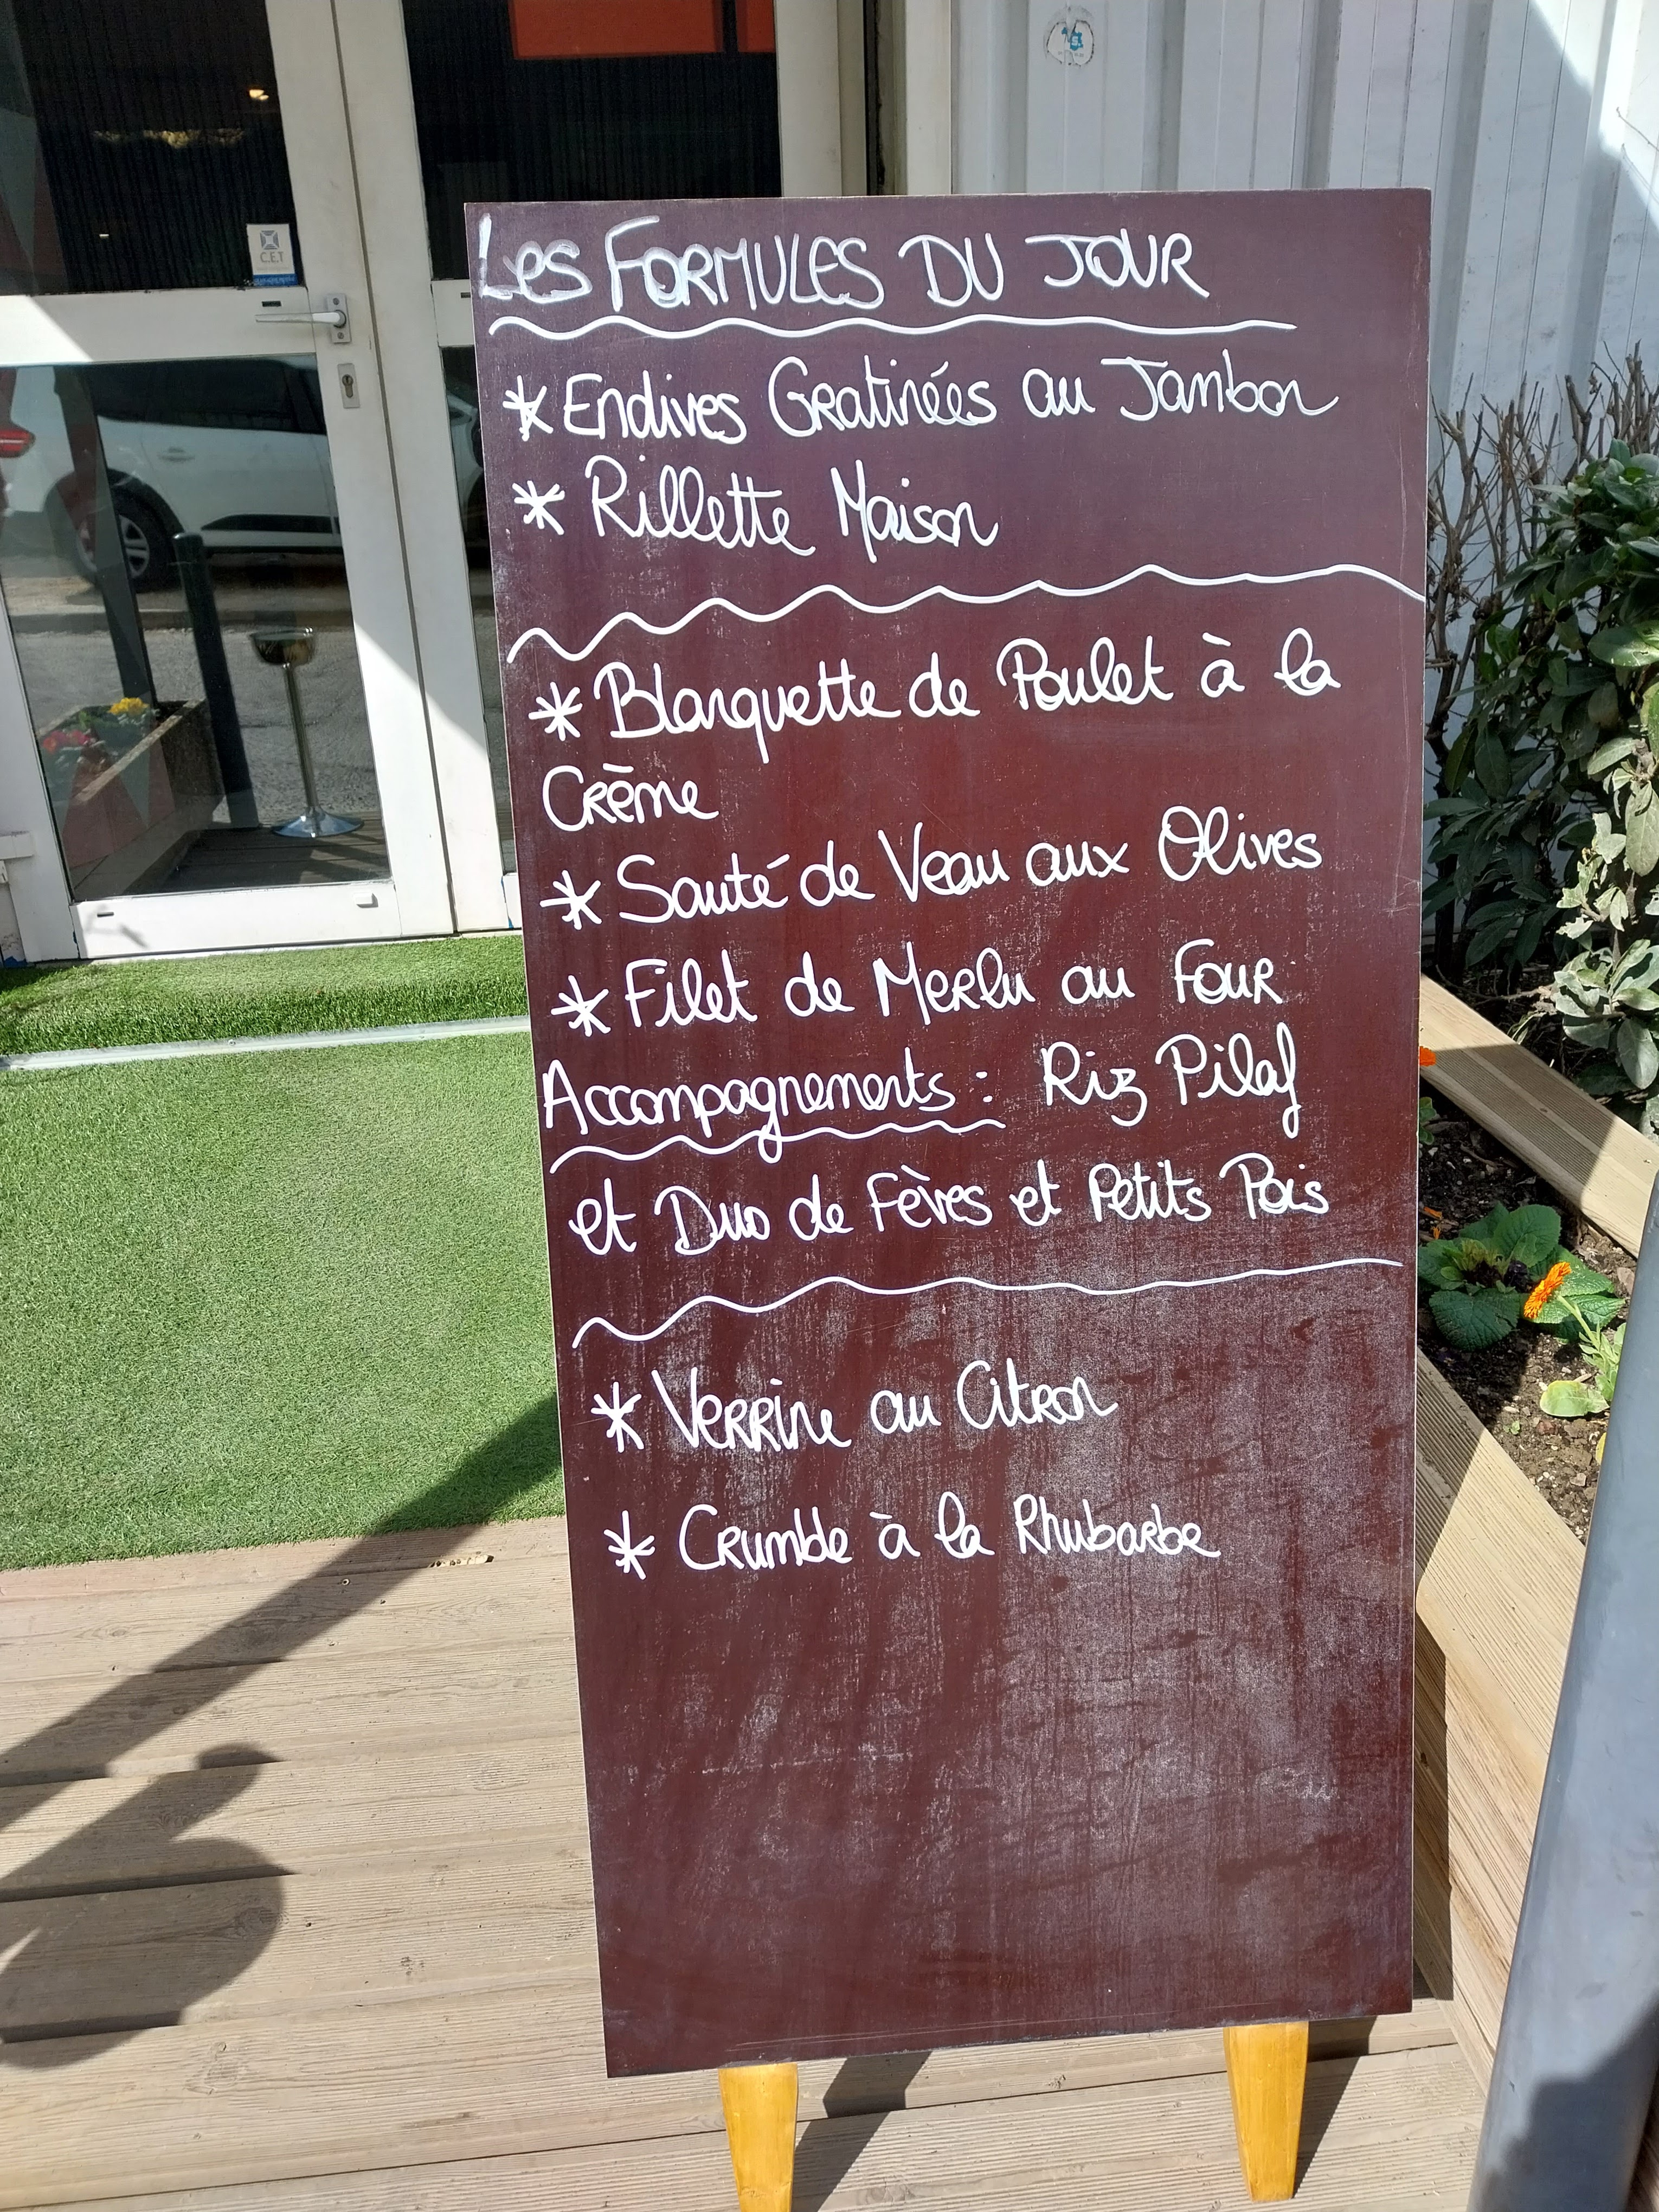 Les FORMULES DU JOUR
* Endives Gratinées au Jambon
* Rillette Maison
* Blanquette de Poulet à la
Crème
* Sauté de Veau aux Olives
* Filet de Merlu au Four
Accompagnements : Riz Pilaf
et Duo de Fèves et Petits Pois
* Verrine au Citron
* Crumble à la Rhubarbe
C.E.T